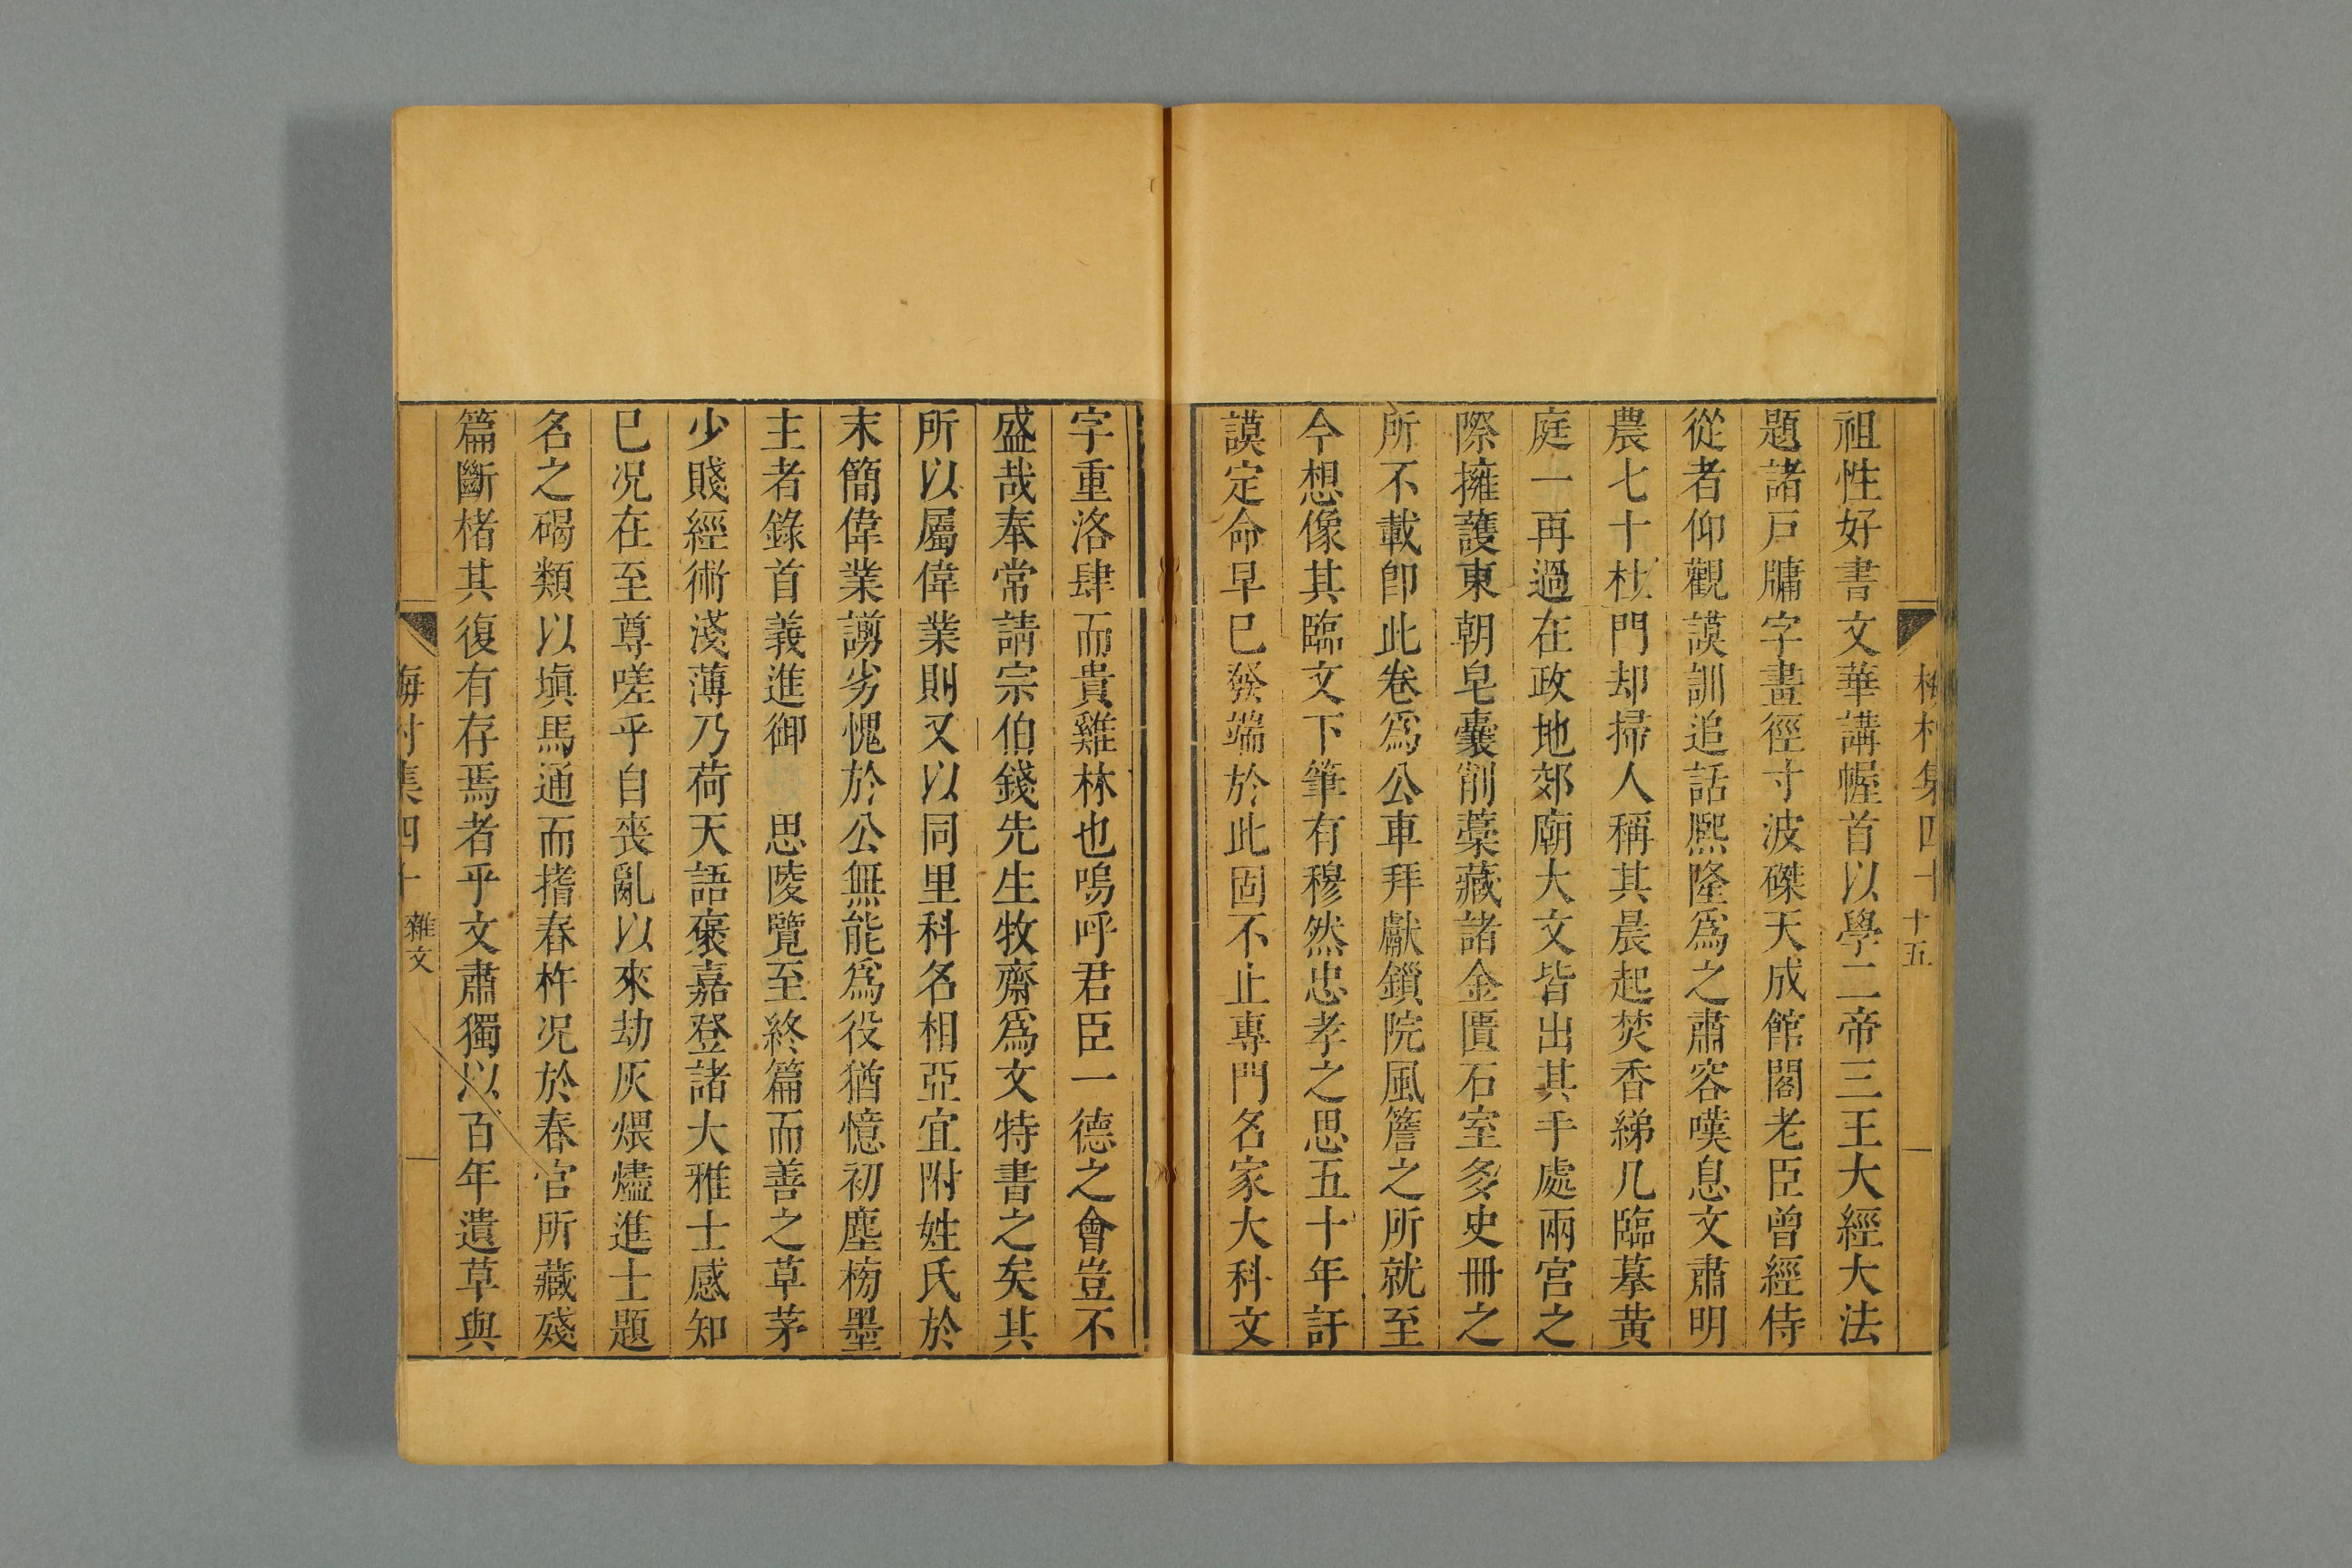 梅村集四十
十五
祖性好書文華講幄首以學二帝三王大經大法
題諸戸牗字畫徑寸波磔天成館閣老臣曾經侍
從者仰觀謨訓追話熈隆爲之肅容嘆息文肅明
農七十杜門却掃人稱其晨起焚香綈几臨摹黄
庭一再過在政地郊廟大文皆出其手處兩宮之
際擁護東朝皂囊削藁藏諸金匱石室多史冊之
所不載卽此卷爲公車拜獻鎻院風簷之所就至
今想像其臨文下筆有穆然忠孝之思五十年訏
謨定命早已發端於此固不止專門名家大科文
字重洛肆而貴雞林也嗚呼君臣一德之會豈不
盛哉奉常請宗伯錢先生牧齋爲文特書之矣其
所以屬偉業則又以同里科名相亞宜附姓氏於
末簡偉業謭劣愧於公無能爲役猶憶初塵榜墨
主者錄首義進御　思陵覽至終篇而善之草茅
少賤經術淺薄乃荷天語褒嘉登諸大雅士感知
已況在至尊嗟乎自喪亂以來劫灰煨燼進士題
名之碣類以塡馬通而搘舂杵况於春官所藏殘
篇斷楮其復有存焉者乎文肅獨以百年遺草與
梅村集四十
雜文